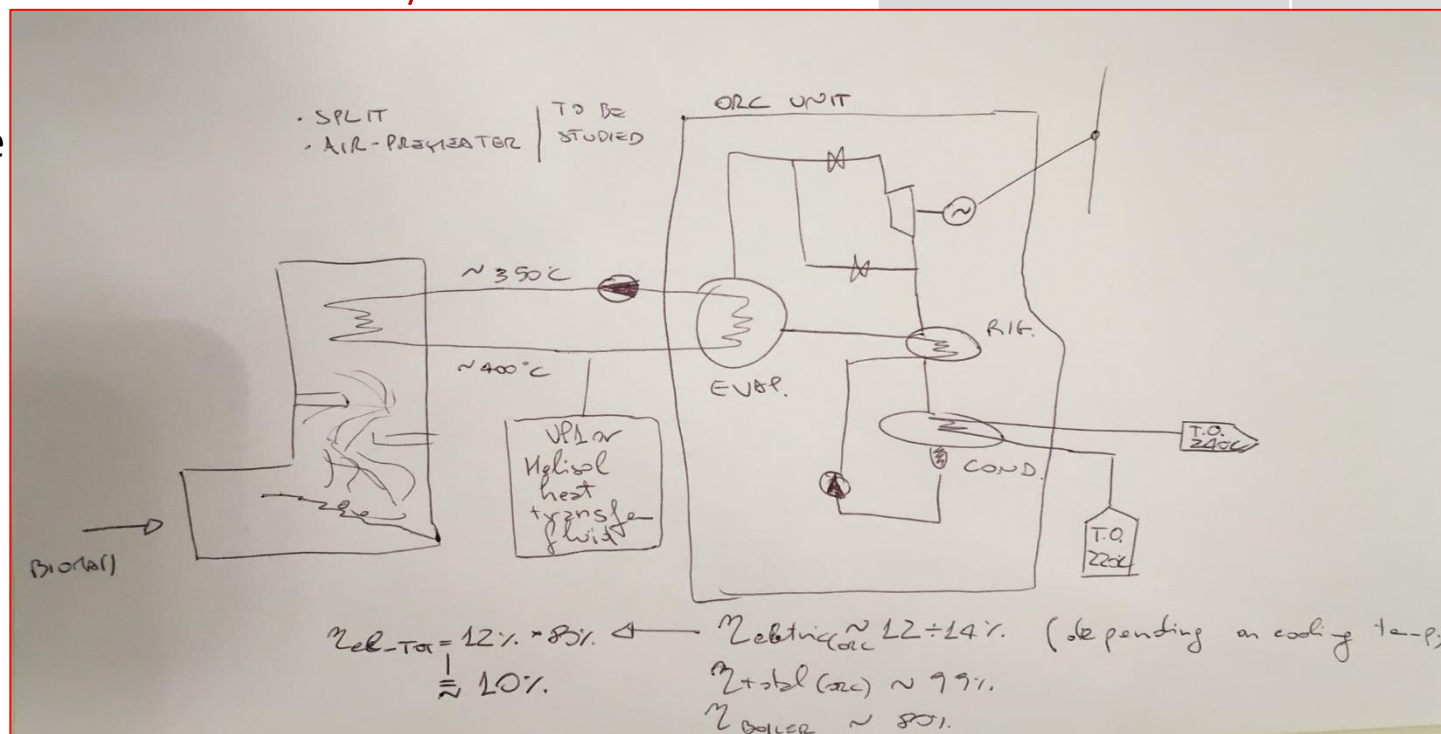 e
· SPLIT
· AIR-PREHEATER
TO BE
STUDIED
ORC UNIT
~ 350°C
~ 400°C
EVAP.
RIG.
COND.
T.O.
240°C
T.O.
220°C
VP1 or
Helisol
heat
transfer
fluid
BIOMASS
η el-TOT = 12% * 83%
≈ 10%
η electric(orc) ~ 12÷14% (depending on cooling temp)
η total (orc) ~ 99%
η BOILER ~ 80%